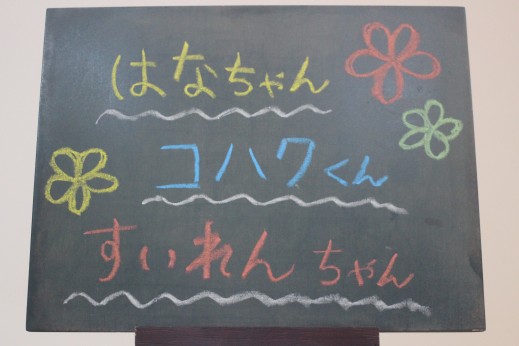 はなちゃん
コハクくん
すいれんちゃん